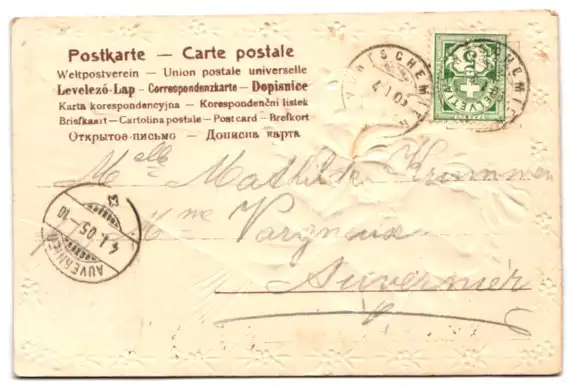 Postkarte — Carte postale
Weltpostverein — Union postale universelle
Levelező-Lap — Correspondenzkarte — Dopisnice
Karta korespondencyjna — Korespondenční listek
Briefkaart — Cartolina postale — Post card — Brefkort
Открытое-письмо — Дописна карта
HELVETIA
5
Melle Mathilde Krummen
Mme Vargneux
Auvernier
AUVERNIER
4.I.05-10